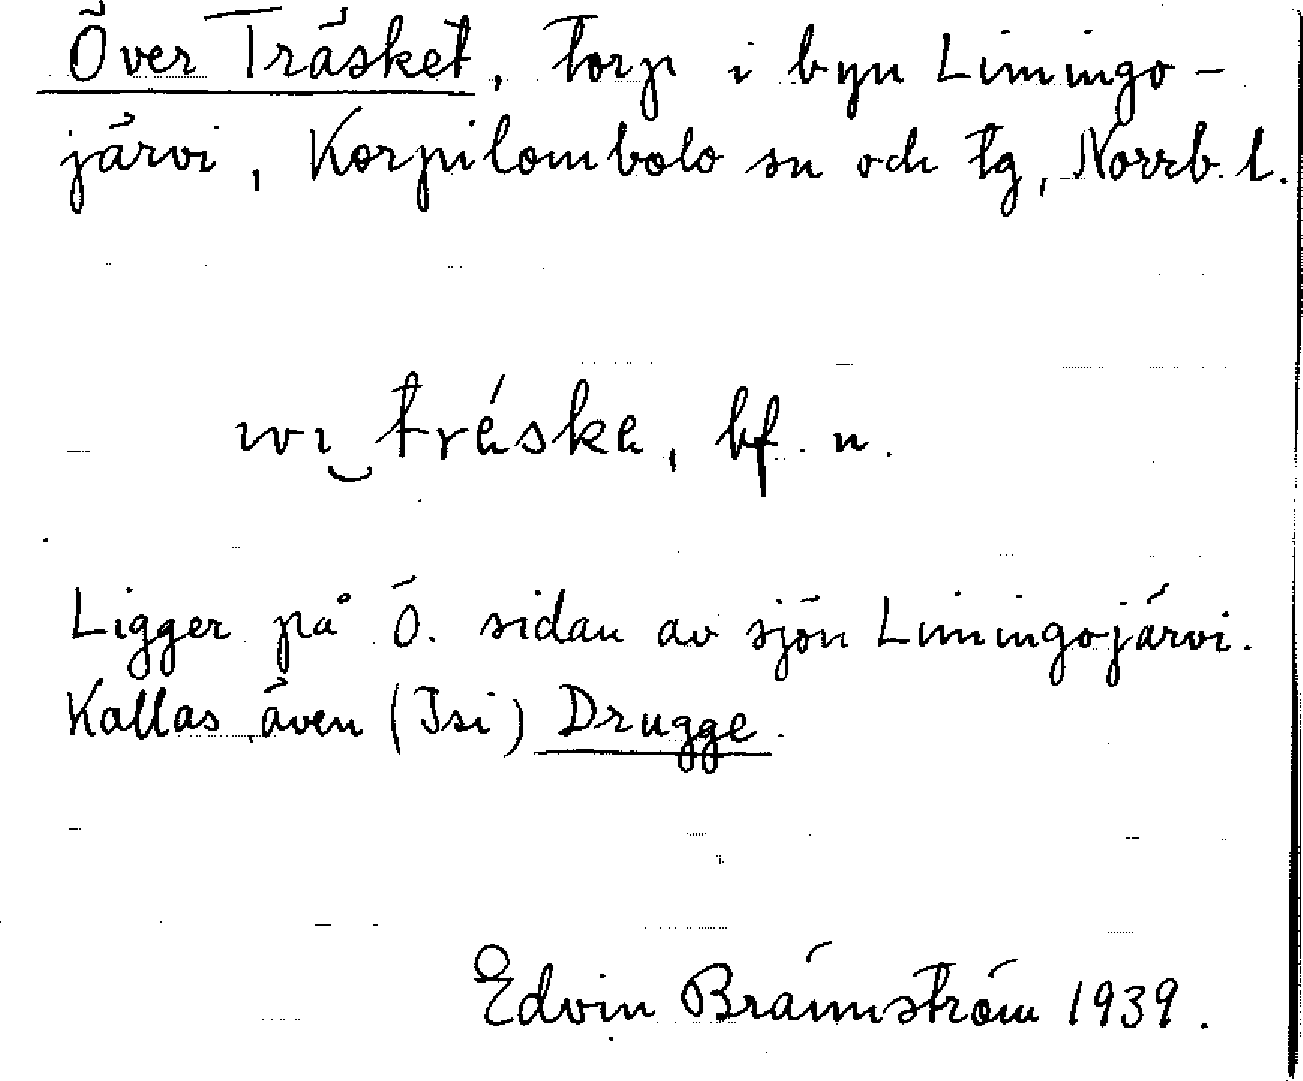 Över Träsket, torp i byn Limingo-
järvi, Korpilombolo sn och tg, Norrb. l.
ıvı‿tráska, bf. n.
Ligger på Ö. sidan av sjön Limingojärvi.
Kallas även (Isi) Drugge.
Edvin Brännström 1939.